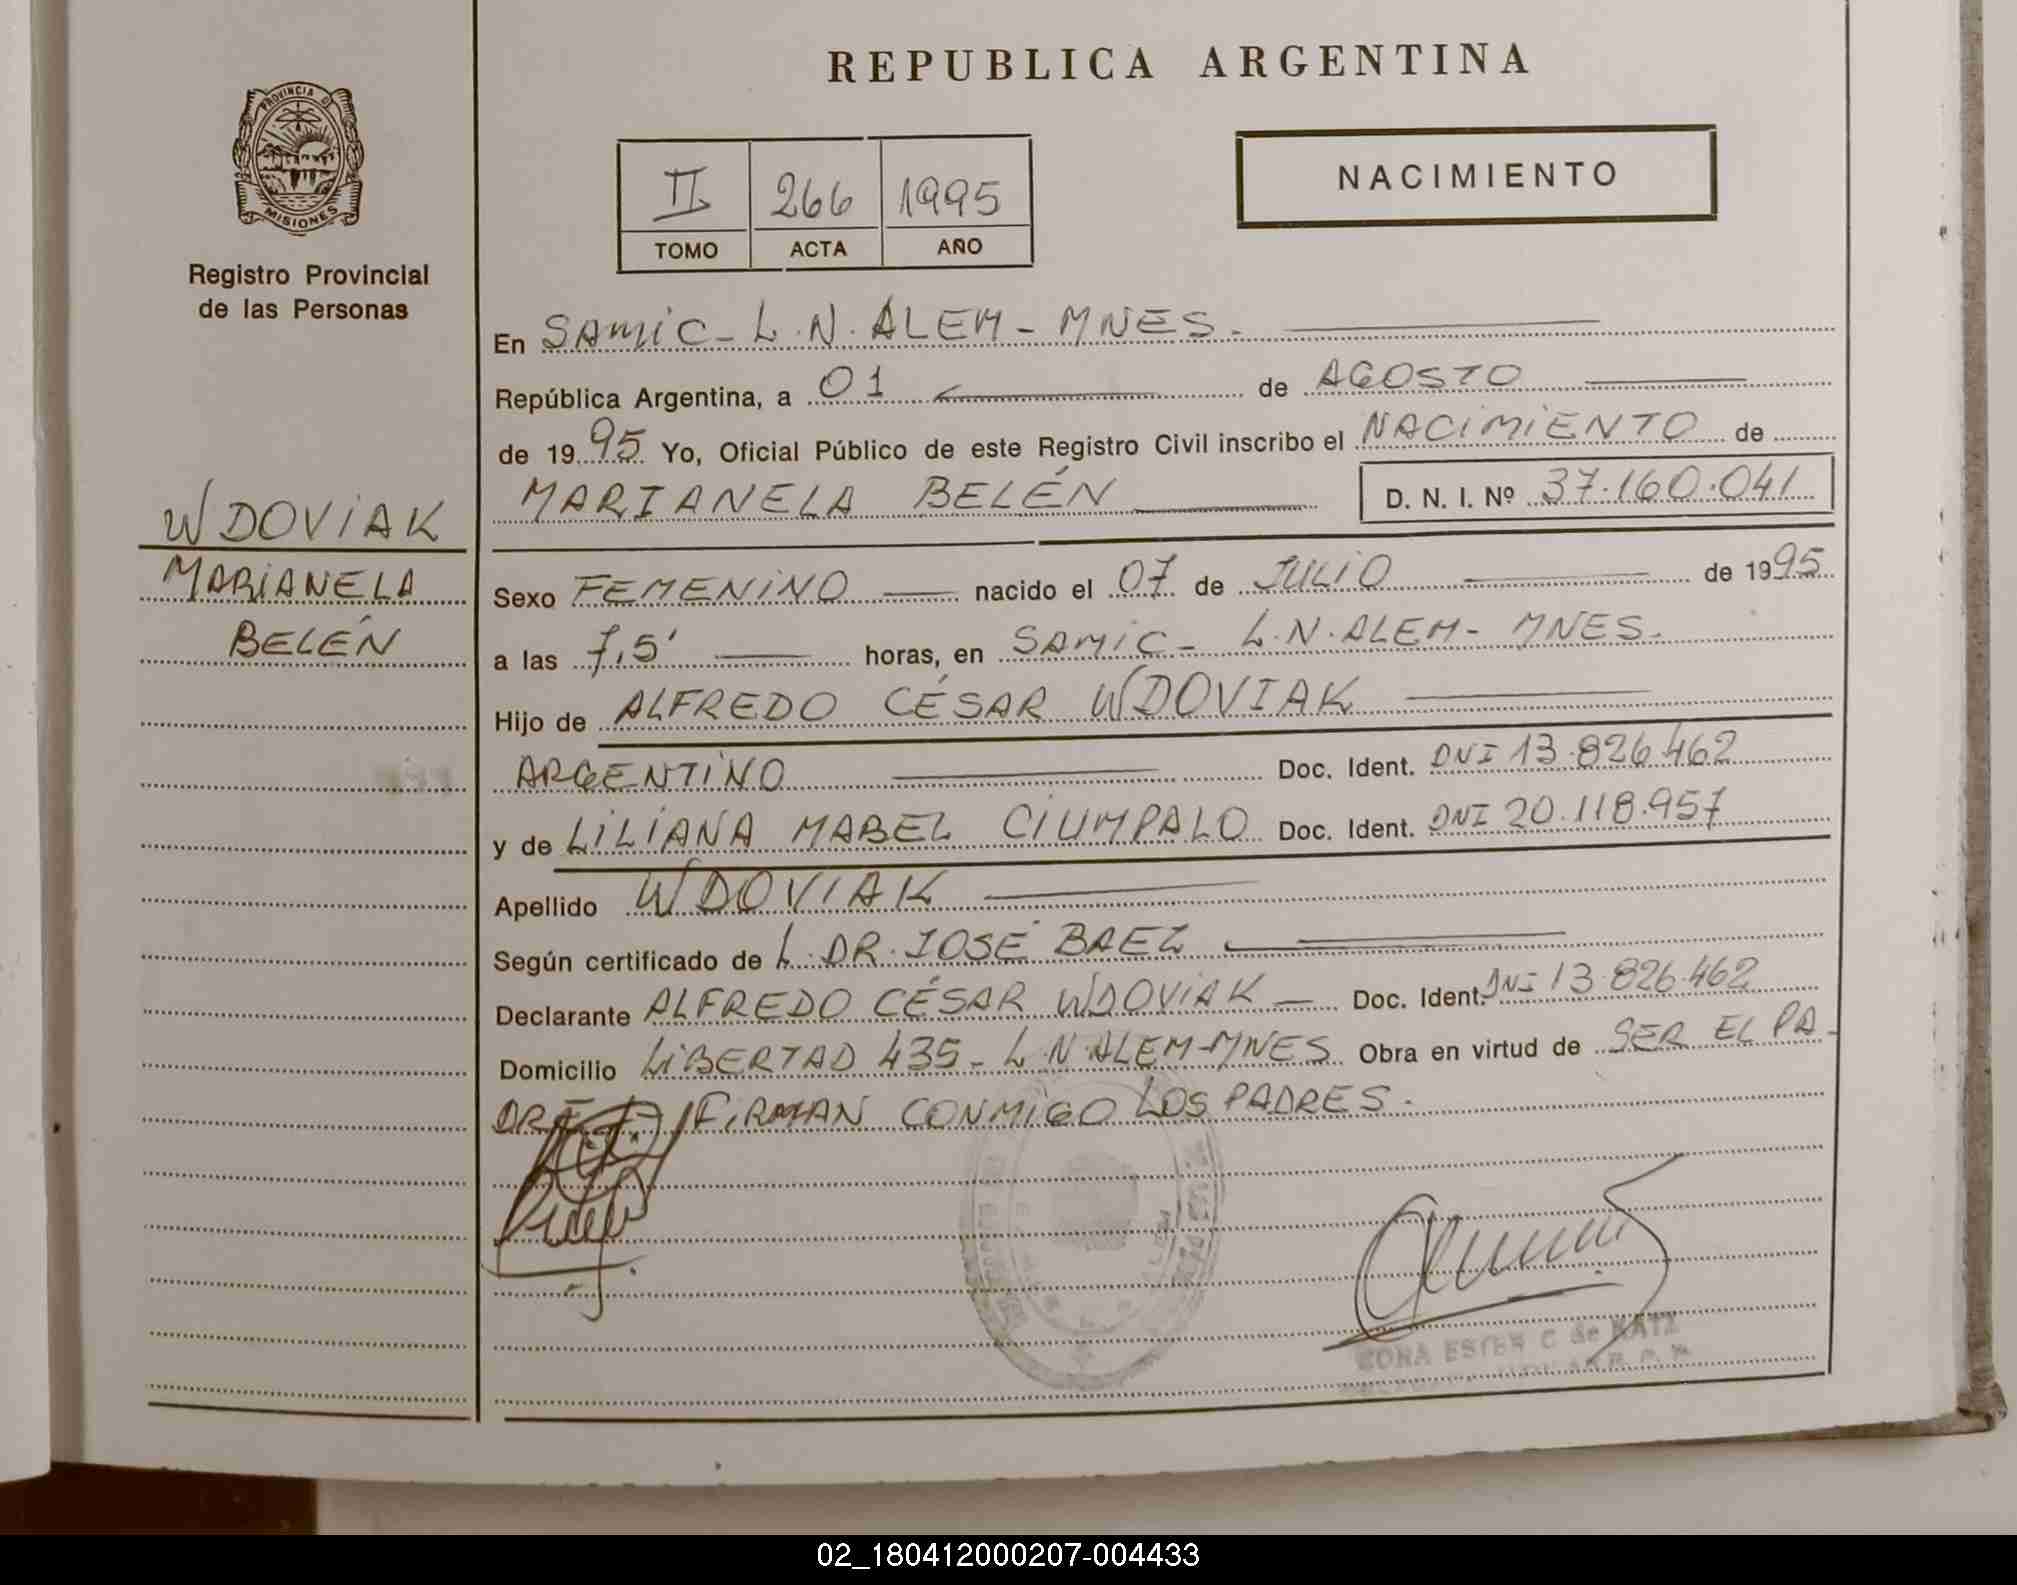 REPUBLICA ARGENTINA
PROVINCIA D
MISIONES
Registro Provincial
de las Personas
II 266 1995
TOMO ACTA AÑO
NACIMIENTO
En SAMIC - L.N. ALEM - MNES.
República Argentina, a 01 de AGOSTO
de 1995 Yo, Oficial Público de este Registro Civil inscribo el NACIMIENTO de
MARIANELA BELÉN D. N. I. Nº 37.160.041
WDOVIAK
MARIANELA
BELÉN
Sexo FEMENINO nacido el 07 de JULIO de 1995
a las 7,5' horas, en SAMIC - L.N. ALEM - MNES.
Hijo de ALFREDO CÉSAR WDOVIAK
ARGENTINO Doc. Ident. DNI 13.826.462
y de LILIANA MABEL CIUMPALO Doc. Ident. DNI 20.118.957
Apellido WDOVIAK
Según certificado de L. DR. JOSÉ BAEZ
Declarante ALFREDO CÉSAR WDOVIAK Doc. Ident. DNI 13.826.462
Domicilio LIBERTAD 435 - L.N. ALEM - MNES Obra en virtud de SER EL PA-
DRE FIRMAN CONMIGO LOS PADRES.
ESTER C de KATZ
02_180412000207-004433